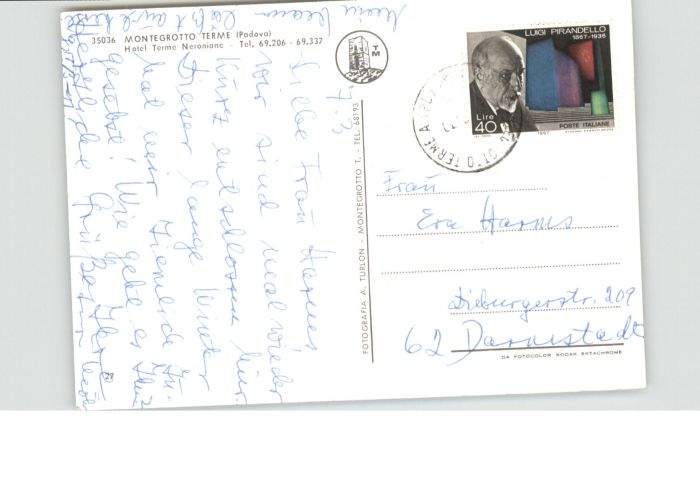 35036 MONTEGROTTO TERME (Padova)
Hotel Terme Neroniane - Tel. 69.206 - 69.337
TM
LUIGI PIRANDELLO
1867-1936
Lire
40
POSTE ITALIANE
1967
OTTO TERME
FOTOGRAFIA A. TURLON - MONTEGROTTO T. - TEL. 68193
7.3
Liebe Frau Harms
wir sind mal wieder
kurz entschlossen hier.
Dieser lange Winter
hat mir ziemlich zu-
gesetzt! Wie geht es Ihnen
Herzliche Grüße
Mein Mann
läßt
Frau
Eva Harms
Dieburgerstr. 209
62 Darmstadt
DA FOTOCOLOR KODAK EKTACHROME